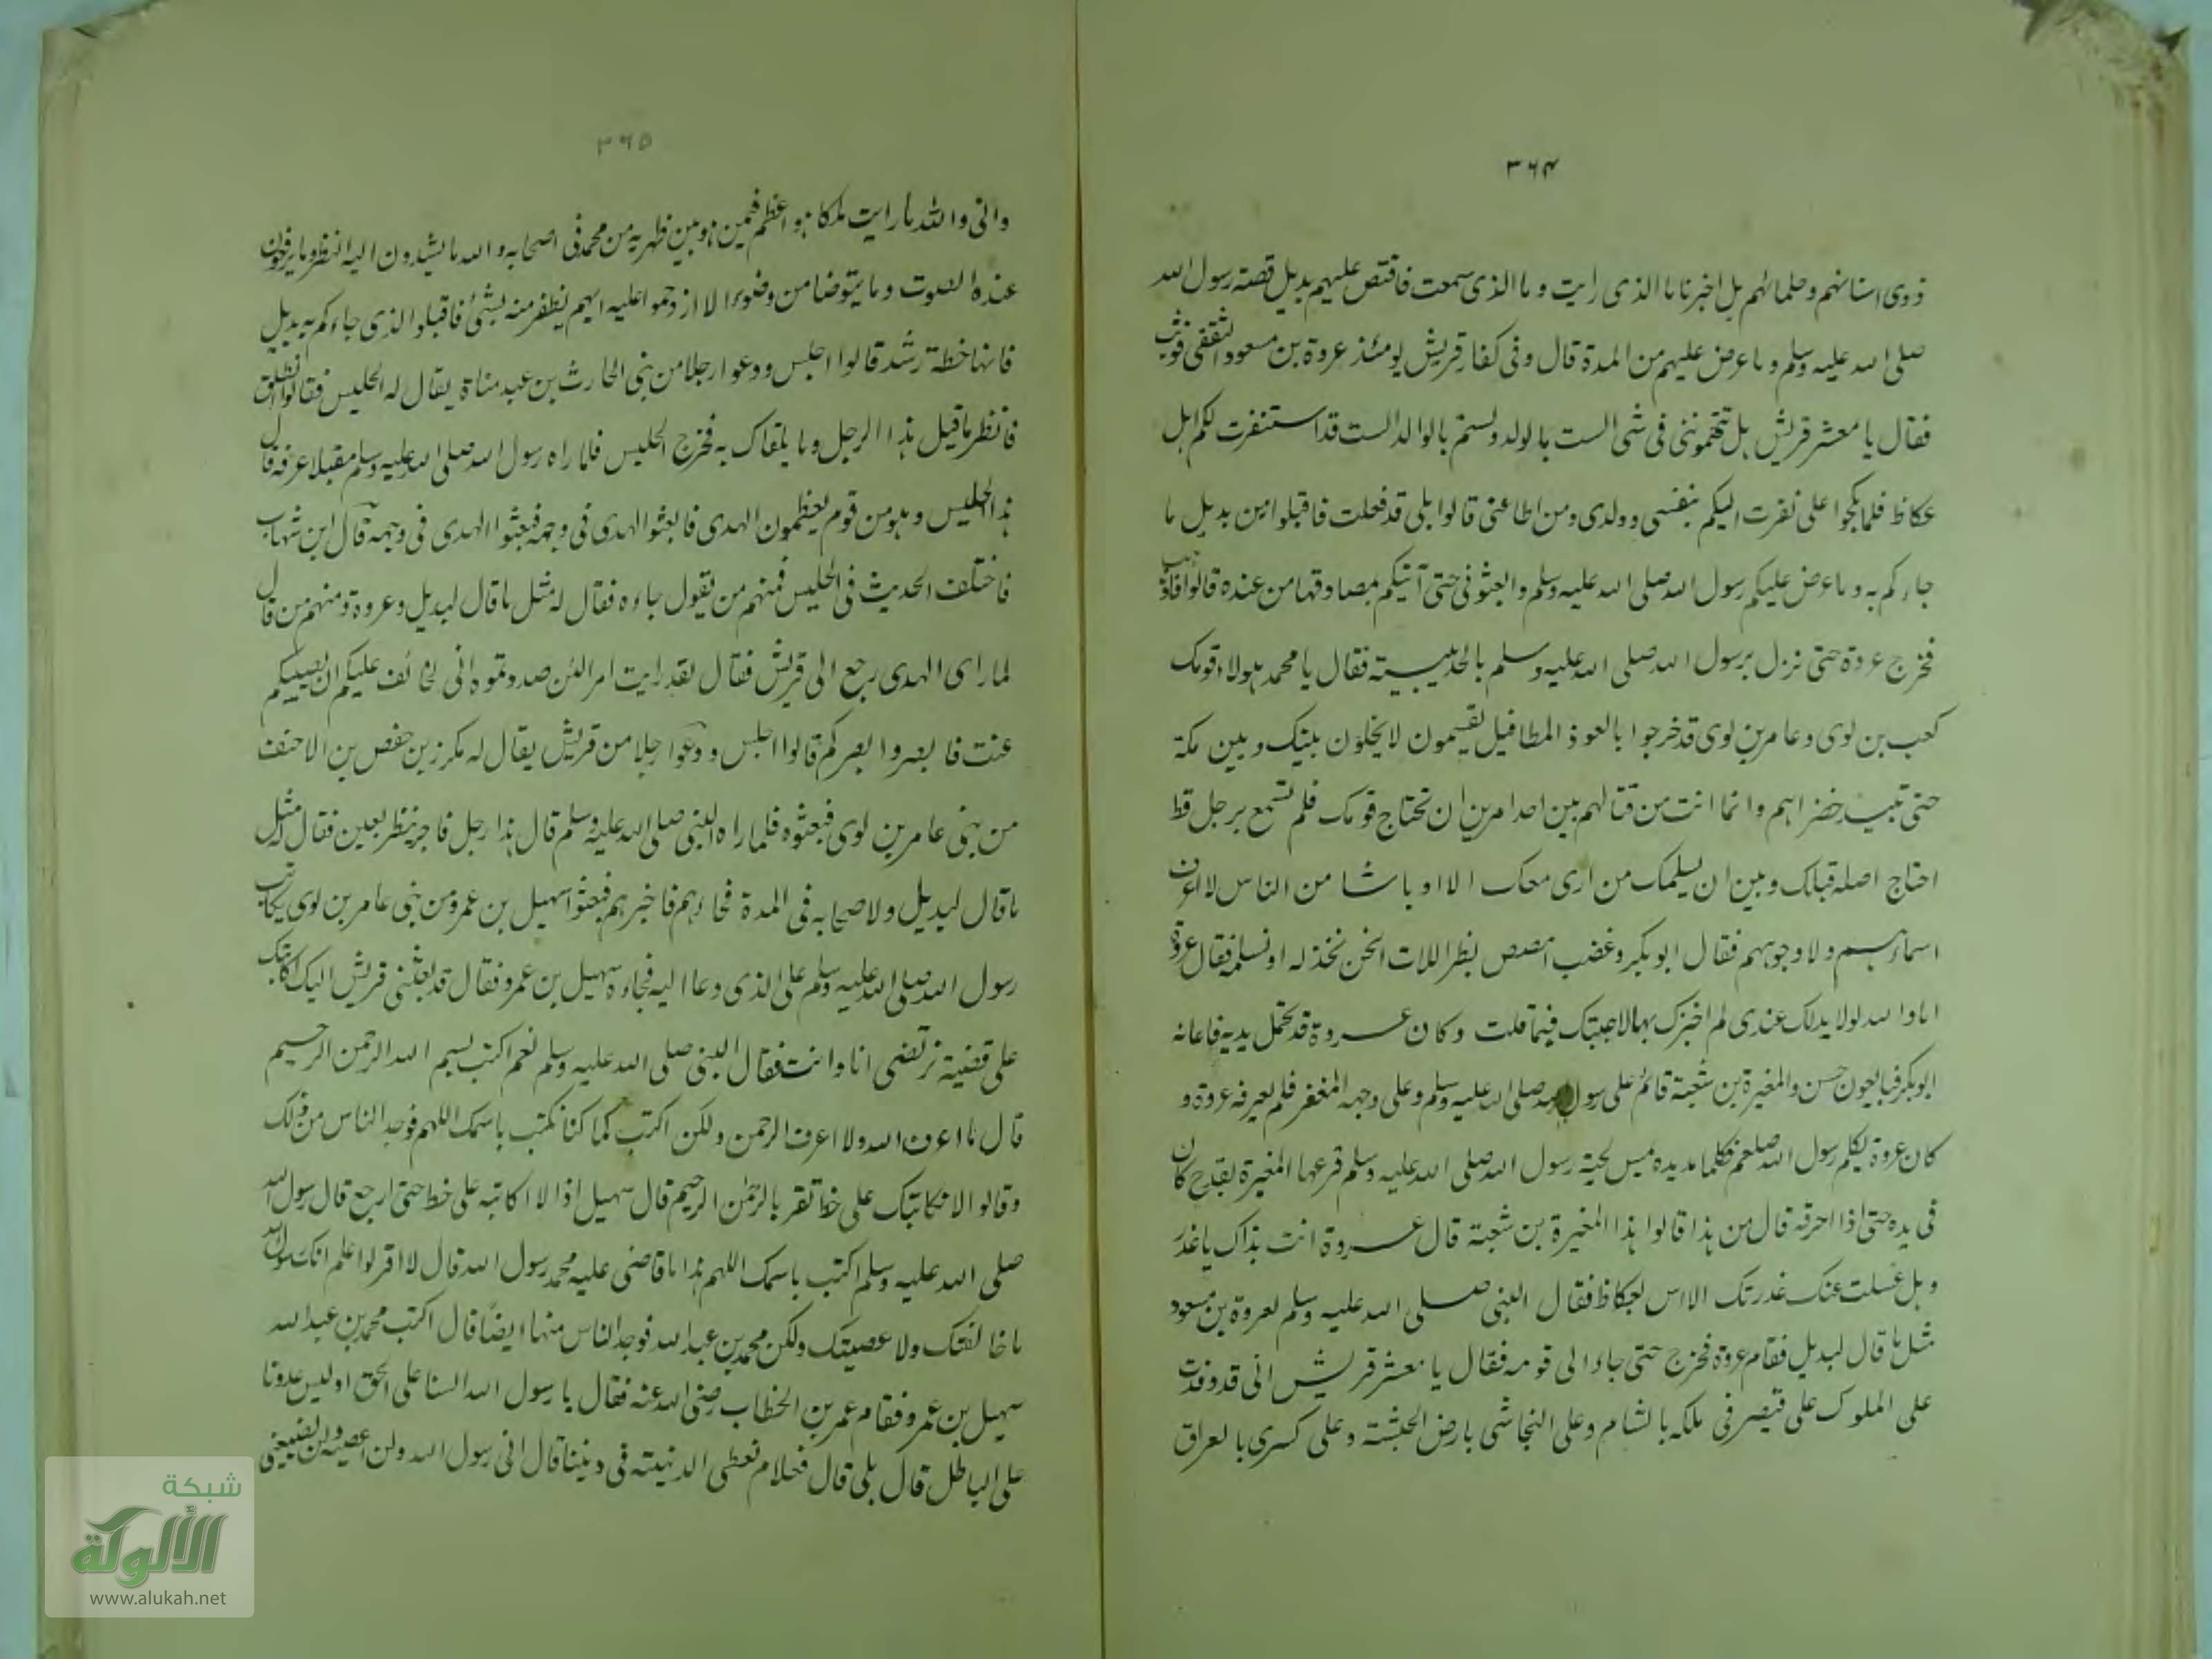 ٣٦٤
ذوی اسنانهم وحلمائهم بل اخبرنا ما الذی رایت وما الذی سمعت فاقتص علیهم بدیل قصة رسول الله
صلی الله علیه وسلم وما عرض علیهم من المدة قال وفی کفار قریش یومئذ عروة بن مسعود الثقفی فوثب
فقال یا معشر قریش هل تتهموننی فی شی الست بالولد ولستم بالوالد الست قد استنفرت لکم اهل
عکاظ فلما بلحوا علی نفرت الیکم بنفسی وولدی ومن اطاعنی قالوا بلی قد فعلت فاقبلوا من بدیل ما
جاءکم به وما عرض علیکم رسول الله صلی الله علیه وسلم وابعثونی حتی آتیکم بمصادقها من عنده قالوا فاذهب
فخرج عروة حتی نزل برسول الله صلی الله علیه وسلم بالحدیبیة فقال یا محمد هولاء قومک
کعب بن لوی وعامر بن لوی قد خرجوا بالعوذ المطافیل یقسمون لا یخلون بینک وبین مکة
حتی تبید خضراهم وانما انت من قتالهم بین احد امرین ان تحتاج قومک فلم تسمع برجل قط
احتاج اصله قبلک وبین ان یسلمک من اری معک الا اوباشا من الناس لا اعرف
اسماءهم ولا وجوههم فقال ابوبکر وغضب امصص بظر اللات انحن نخذله او نسلمه فقال عروة
اما والله لولا ید لک عندی لم اجزک بها لاجبتک فیما قلت وکان عروة قد تحمل بدیة فاعانه
ابوبکر فیها بعون حسن والمغیرة بن شعبة قائم علی رسول الله صلی الله علیه وسلم وعلی وجهه المغفر فلم یعرفه عروة و
کان عروة یکلم رسول الله صلعم فکلما مد یده یمس لحیة رسول الله صلی الله علیه وسلم قرعها المغیرة بقدح کان
فی یده حتی اذا احرقه قال من هذا قالوا هذا المغیرة بن شعبة قال عروة انت بذاک یا غدر
وهل غسلت عنک غدرتک الا امس بعکاظ فقال النبی صلی الله علیه وسلم لعروة بن مسعود
مثل ما قال لبدیل فقام عروة فخرج حتی جاء الی قومه فقال یا معشر قریش انی قد وفدت
علی الملوک علی قیصر فی ملکه بالشام وعلی النجاشی بارض الحبشة وعلی کسری بالعراق
٣٦٥
وانی والله ما رایت ملکا هو اعظم فیمن هو بین ظهریه من محمد فی اصحابه والله ما یشدون الیه النظر وما یرفعون
عنده الصوت وما یتوضا من وضوء الا ازدحموا علیه ایهم یظفر منه بشئ فاقبلوا الذی جاءکم به بدیل
فانها خطة رشد قالوا اجلس ودعوا رجلا من بنی الحارث بن عبد مناة یقال له الحلیس فقالوا انطلق
فانظر ما قبل هذا الرجل وما یلقاک به فخرج الحلیس فلما راه رسول الله صلی الله علیه وسلم مقبلا عرفه قال
هذا الحلیس وهو من قوم یعظمون الهدی فابعثوا الهدی فی وجهه فبعثوا الهدی فی وجهه قال ابن شهاب
فاختلف الحدیث فی الحلیس فمنهم من یقول جاءه فقال له مثل ما قال لبدیل وعروة ومنهم من قال
لما رای الهدی رجع الی قریش فقال لقد رایت امرا لئن صددتموه انی لخائف علیکم ان یصیبکم
عنت فابصروا بصرکم قالوا اجلس ودعوا رجلا من قریش یقال له مکرز بن حفص بن الاحنف
من بنی عامر بن لوی فبعثوه فلما راه النبی صلی الله علیه وسلم قال هذا رجل فاجر ینظر بعین فقال له مثل
ما قال لبدیل ولاصحابه فی المدة فجاءهم فاخبرهم فبعثوا سهیل بن عمرو من بنی عامر بن لوی یکاتب
رسول الله صلی الله علیه وسلم علی الذی دعا الیه فجاءه سهیل بن عمرو فقال قد بعثنی قریش الیک اکاتبک
علی قضیة نرتضی انا وانت فقال النبی صلی الله علیه وسلم نعم اکتب بسم الله الرحمن الرحیم
قال ما اعرف الله ولا اعرف الرحمن ولکن اکتب کما کنا نکتب باسمک اللهم فوجد الناس من ذلک
وقالوا لا نکاتبک علی خط تقر بالرحمن الرحیم قال سهیل اذا لا اکاتبه علی خط حتی ارجع قال رسول الله
صلی الله علیه وسلم اکتب باسمک اللهم هذا ما قاضی علیه محمد رسول الله قال لا اقر لو اعلم انک رسول الله
ما خالفتک ولا عصیتک ولکن محمد بن عبد الله فوجد الناس منها ایضا قال اکتب محمد بن عبد الله
سهیل بن عمرو فقام عمر بن الخطاب رضی الله عنه فقال یا رسول الله السنا علی الحق اولیس عدونا
علی الباطل قال بلی قال فعلام نعطی الدنیة فی دیننا قال انی رسول الله ولن اعصیه ولن یضیعنی
شبكة
الألوكة
www.alukah.net